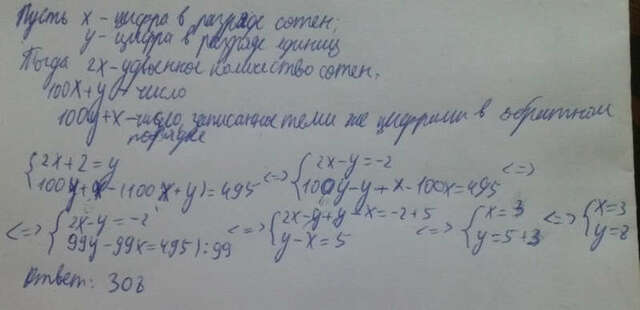 Пусть x - цифра в разряде сотен;
y - цифра в разряде единиц
Тогда 2x - удвоенное количество сотен.
100x+y - число
100y+x - число, записанное теми же цифрами в обратном
порядке
{2x+2=y <=> {2x-y=-2 <=>
{100y+x-(100x+y)=495 {100y-y+x-100x=495
<=> {2x-y=-2 <=> {2x-y+y-x=-2+5 <=> {x=3 <=> {x=3
{99y-99x=495):99 {y-x=5 {y=5+3 {y=8
Ответ: 308